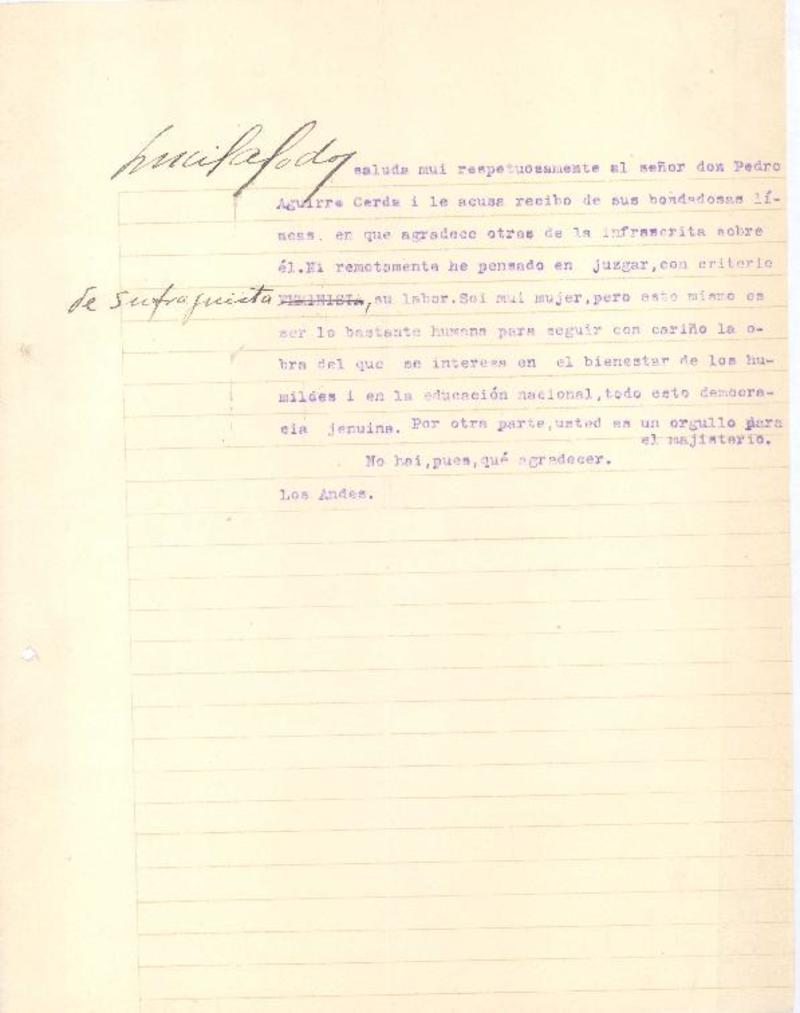 Lucila Godoy saluda mui respetuosamente al señor don Pedro
Aguirre Cerda i le acusa recibo de sus bondadosas lí-
neas, en que agradece otras de la infrascrita sobre
él.Ni remotamente he pensado en juzgar,con criterio
de sufragista FEMINISTA,su labor.Soi mui mujer,pero esto mismo es
ser lo bastante humana para seguir con cariño la o-
bra del que se interesa en el bienestar de los hu-
mildes i en la educación nacional,todo esto democra-
cia jenuina. Por otra parte,usted es un orgullo para
el majisterio.
No hai,pues,qué agradecer.
Los Andes.